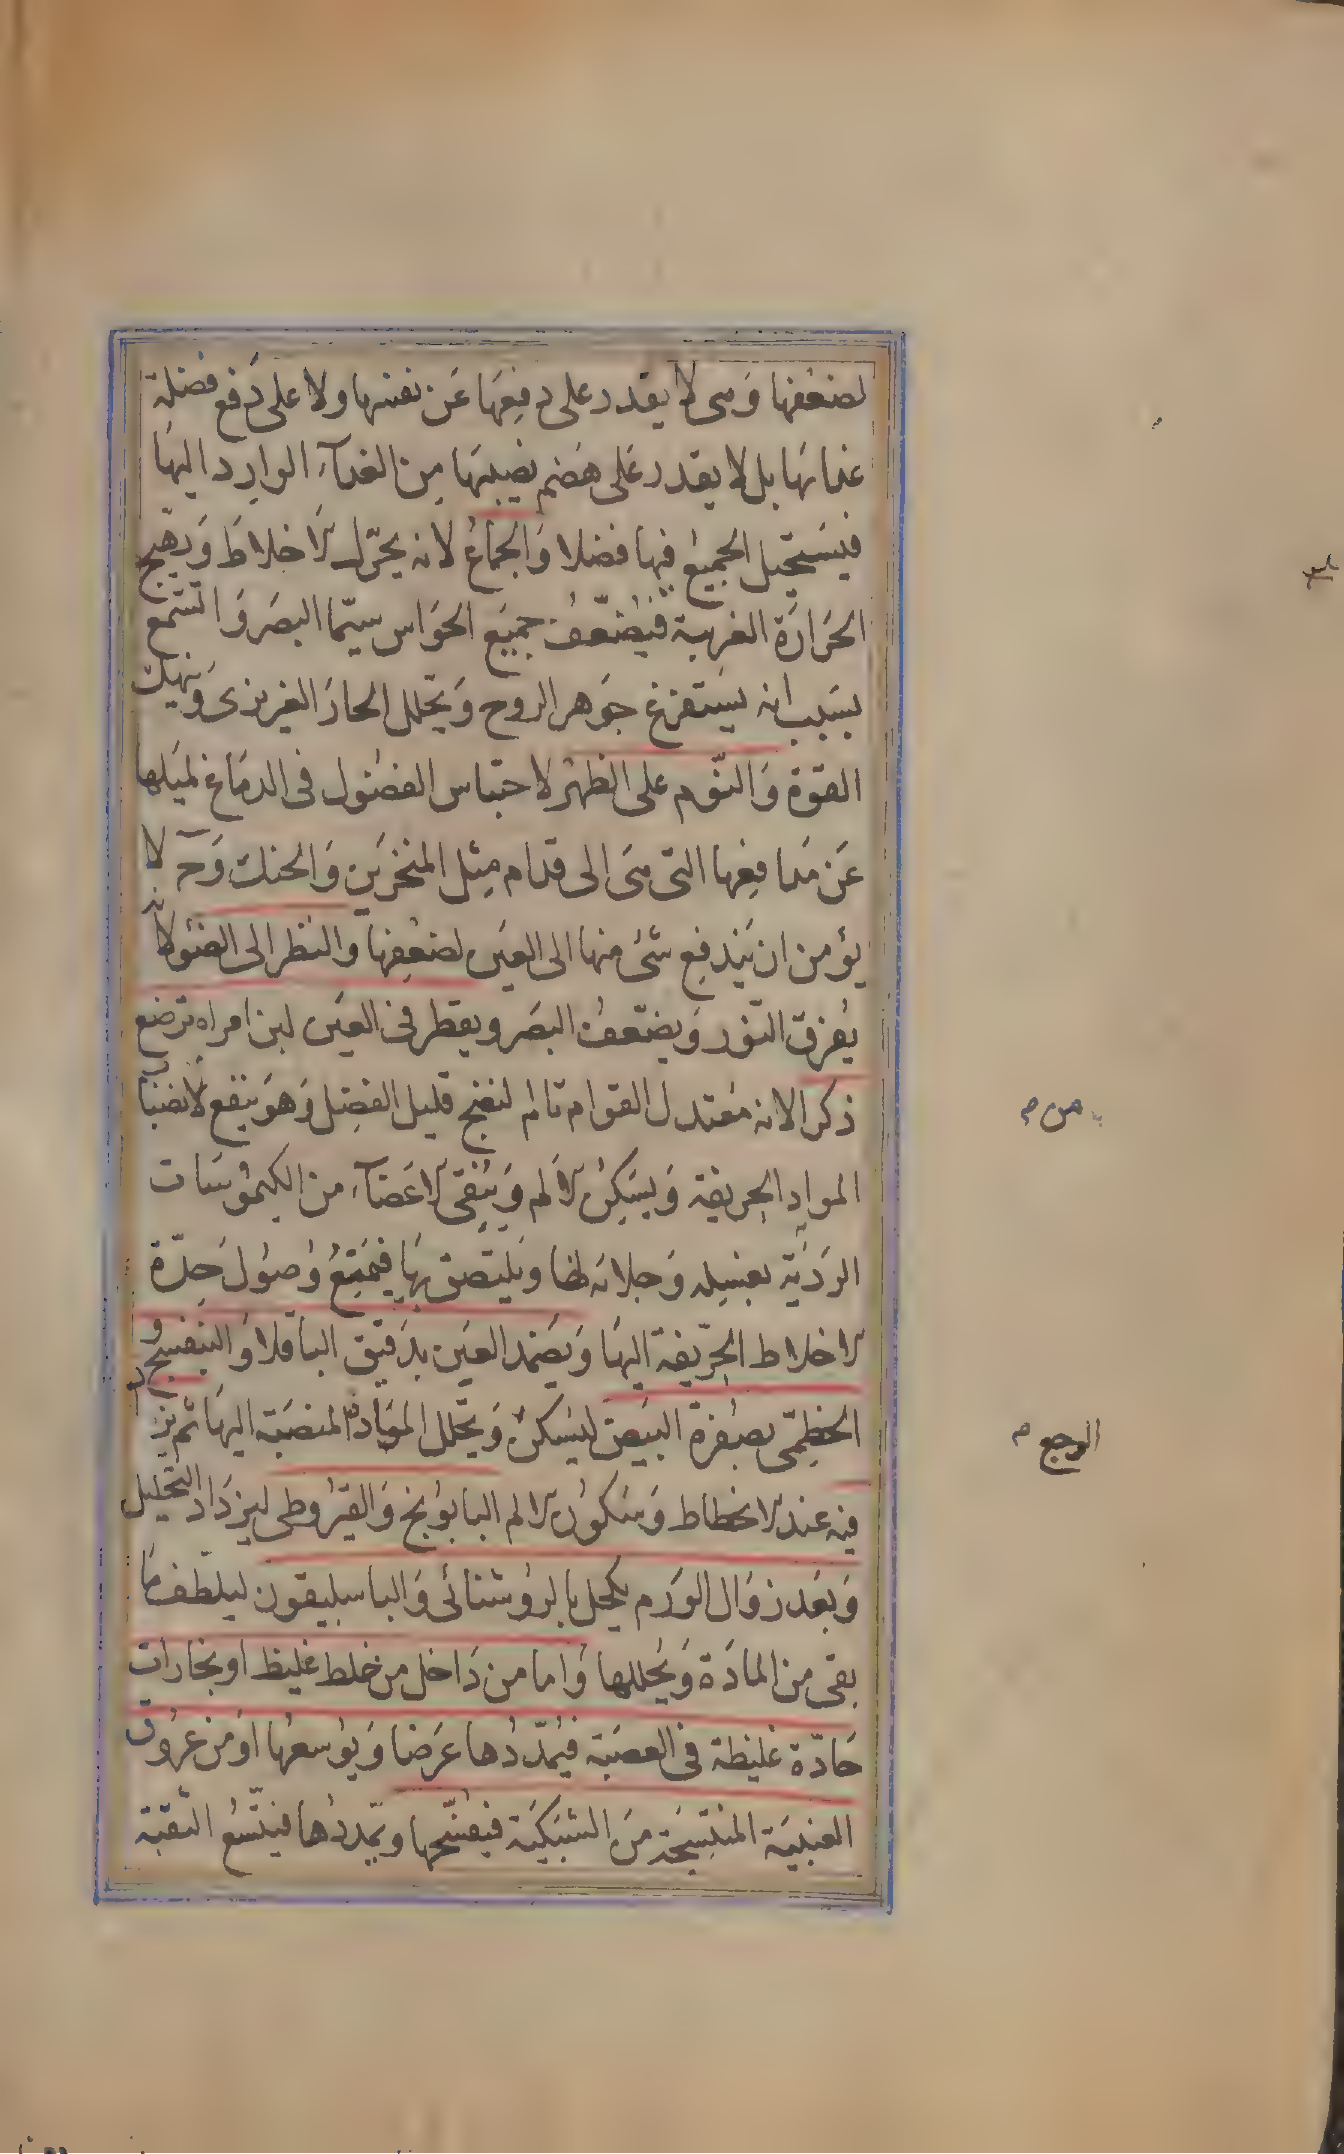 لضعفها وهى لا يقدر على دفعها عن نفسها ولا على دفع فضلة
غذائها بل لا يقدر على هضم نصيبها من الغدآء الوارد اليها
فيستحيل الجميع فيها فضلا والجماع لانه يحرّك الاخلاط ويهيج
الحرارة الغريبة فيضعّف جميع الحواس سيّما البصر والسّمع
بسبب انه يستفرغ جوهر الروح ويحلل الحار الغريزى وينهك
القوة والنّوم على الظهر لاحتباس الفضول فى الدماغ لميلها
عن مدافعها التى هى الى قدام مثل المنخرين والحنك وح لا
يؤمن ان يندفع شئ منها الى العين لضعفها والنظر الى الضوء لانه
يفرق النّور ويضعّف البصر ويقطر فى العين لبن امراه ترضع
ذكرا لانه معتدل القوام تام النضج قليل الفضل وهو ينفع لانصباب
المواد الحريفة ويسكن الالم وينقى الاعضآء من الكيموسات
الرديّة بغسله وجلائه لها ويلتصق بها فيمنع وصول حدّة
الاخلاط الحرّيفة اليها ويضمد العين بدقيق الباقلا والبنفسج و
الخطمّى بصفرة البيض ليسكن ويحلل المواد المنصبّة اليها ثم يزيد
فيه عند الانحطاط وسكون الالم البابونج والقيروطى ليزداد التحليل
وبعد زوال الورم يكحل بالروشنائى والباسليقون ليلطّف ما
بقى من المادة ويحللها واما من داخل من خلط غليظ او بخارات
حادّة غليظة فى العصبة فيمدّدها عرضا ويوسعها او من عروق
العنبية المنتسجة من الشبكية فيفسّحها ويمدّدها فيتّسع الثقبة
من م
الوجع م